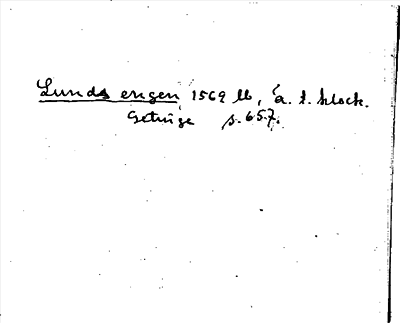 Lunds engen, 1569 lb, ä. t. klock.
Getinge s. 657.